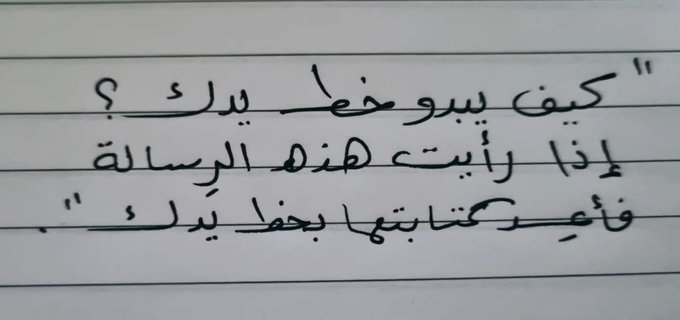 "كيف يبدو خط يدك ؟
إذا رأيت هذه الرسالة
فأعِد كتابتها بخط يَدك".